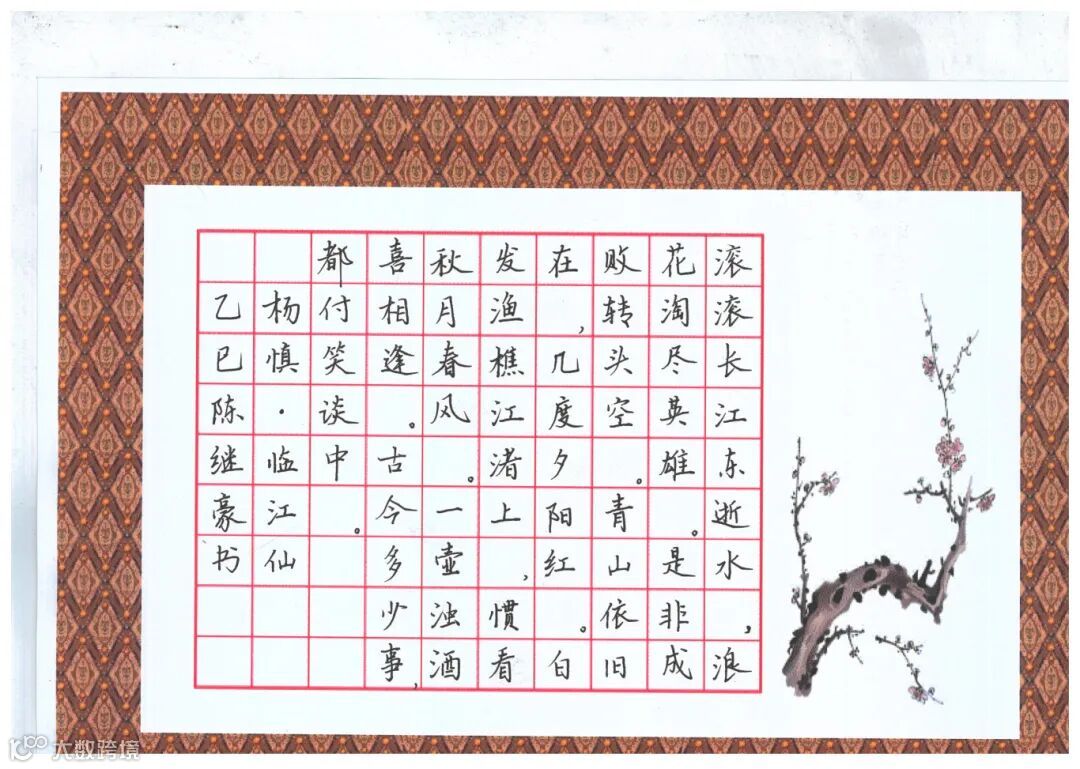 滚滚长江东逝水，浪
花淘尽英雄。是非成
败转头空。青山依旧
在，几度夕阳红。白
发渔樵江渚上，惯看
秋月春风。一壶浊酒
喜相逢。古今多少事，
都付笑谈中。
杨慎·临江仙
乙巳陈继豪书
大数跨境